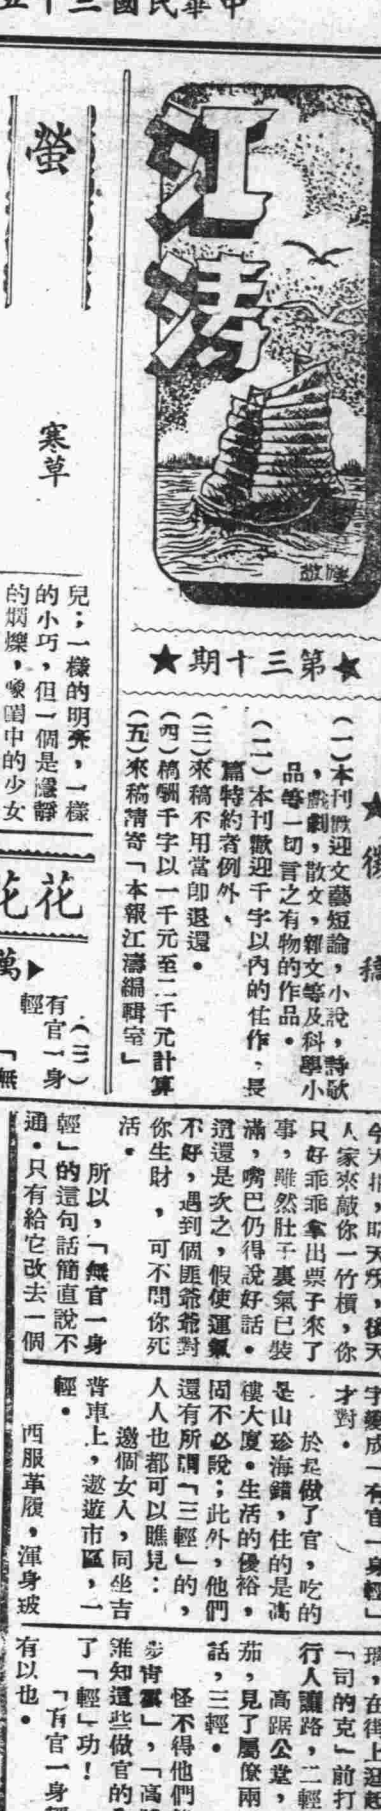 中華民國三十五
江濤
第三十期
徵稿
（一）本刊歡迎文藝短論，小說，詩歌
，戲劇，散文，雜文等及科學小
品等一切言之有物的作品。
（二）本刊歡迎千字以內的佳作，長
篇特約者例外、
（三）來稿不用當即退還。
（四）稿酬千字以一千元至二千元計算
（五）來稿請寄「本報江濤編輯室」
螢
寒草
兒；一樣的明亮，一樣
的小巧，但一個是嫻靜
的閃爍，像閨中的少女
花花
萬
（三）
有官一身
輕
「無
今天捐，明天派，後天
人家來敲你一竹槓，你
只好乖乖拿出票子來了
事，雖然肚子裏氣已裝
滿，嘴巴仍得說好話。
這還是次之，假使運氣
不好，遇到個匪爺爺對
你生財，可不問你死
活。
所以，「無官一身
輕」的這句話簡直說不
通。只有給它改去一個
字變成「有官一身輕」
才對。
於是做了官，吃的
是山珍海錯，住的是高
樓大廈。生活的優裕，
固不必說；此外，他們
還有所謂「三輕」的，
人人也都可以瞧見：
邀個女人，同坐吉
普車上，遨遊市區，一
輕。
西服革履，渾身玻
璃，在街上逛起
「司的克」前打
行人讓路，二輕
高踞公堂，
茄，見了屬僚兩
話，三輕。
怪不得他們
步青雲」，「高
誰知這些做官的
了「輕」功！
「有官一身輕
有以也。